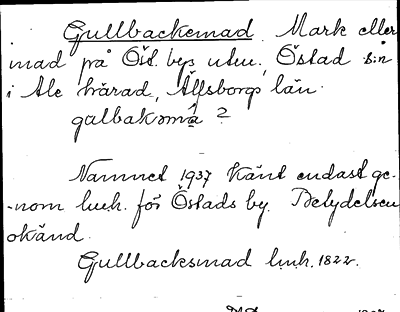 Gullbackemad. Mark eller
mad på Öst. bys utm., Östad s:n
i Ale härad, Älfsborgs län.
galbaksmå ?
Namnet 1937 känt endast ge-
-nom lmh. för Östads by. Betydelsen
okänd.
Gullbacksmad lmh. 1822.